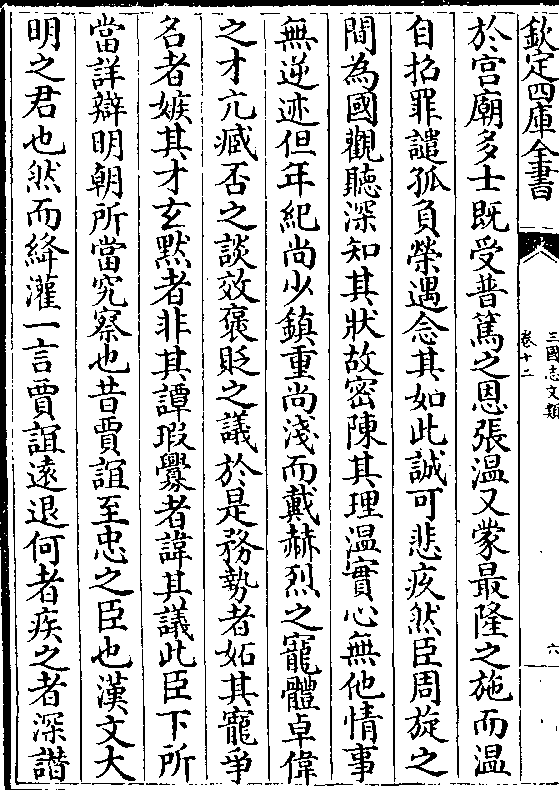 欽定四庫全書
三國志文類
卷十二
六
於宫廟多士既受普篤之恩張温又蒙最隆之施而温
自招罪譴孤負榮遇念其如此誠可悲疚然臣周旋之
間為國觀聽深知其狀故密陳其理温實心無他情事
無逆迹但年紀尚少鎮重尚淺而戴赫烈之寵體卓偉
之才亢臧否之談效褒貶之議於是務勢者妬其寵爭
名者嫉其才玄黙者非其譚瑕釁者諱其議此臣下所
當詳辯明朝所當究察也昔賈誼至忠之臣也漢文大
明之君也然而絳灌一言賈誼逺退何者疾之者深譖